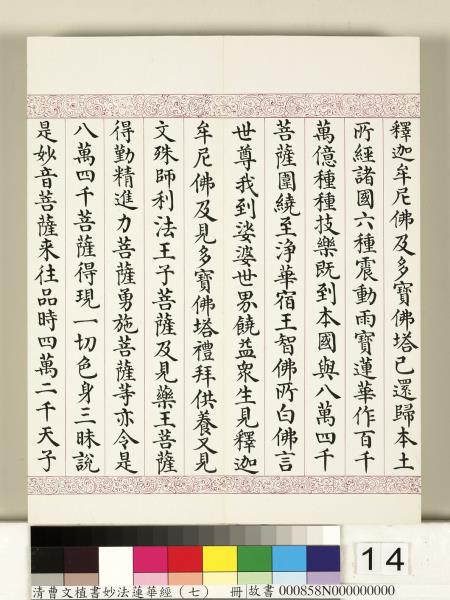 釋迦牟尼佛及多寶佛塔已還歸本土
所經諸國六種震動雨寶蓮華作百千
萬億種種技樂既到本國與八萬四千
菩薩圍繞至淨華宿王智佛所白佛言
世尊我到娑婆世界饒益衆生見釋迦
牟尼佛及見多寶佛塔禮拜供養又見
文殊師利法王子菩薩及見藥王菩薩
得勤精進力菩薩勇施菩薩等亦令是
八萬四千菩薩得現一切色身三昧說
是妙音菩薩來往品時四萬二千天子
14
清曹文植書妙法蓮華經（七） 冊 故書 000858N000000000